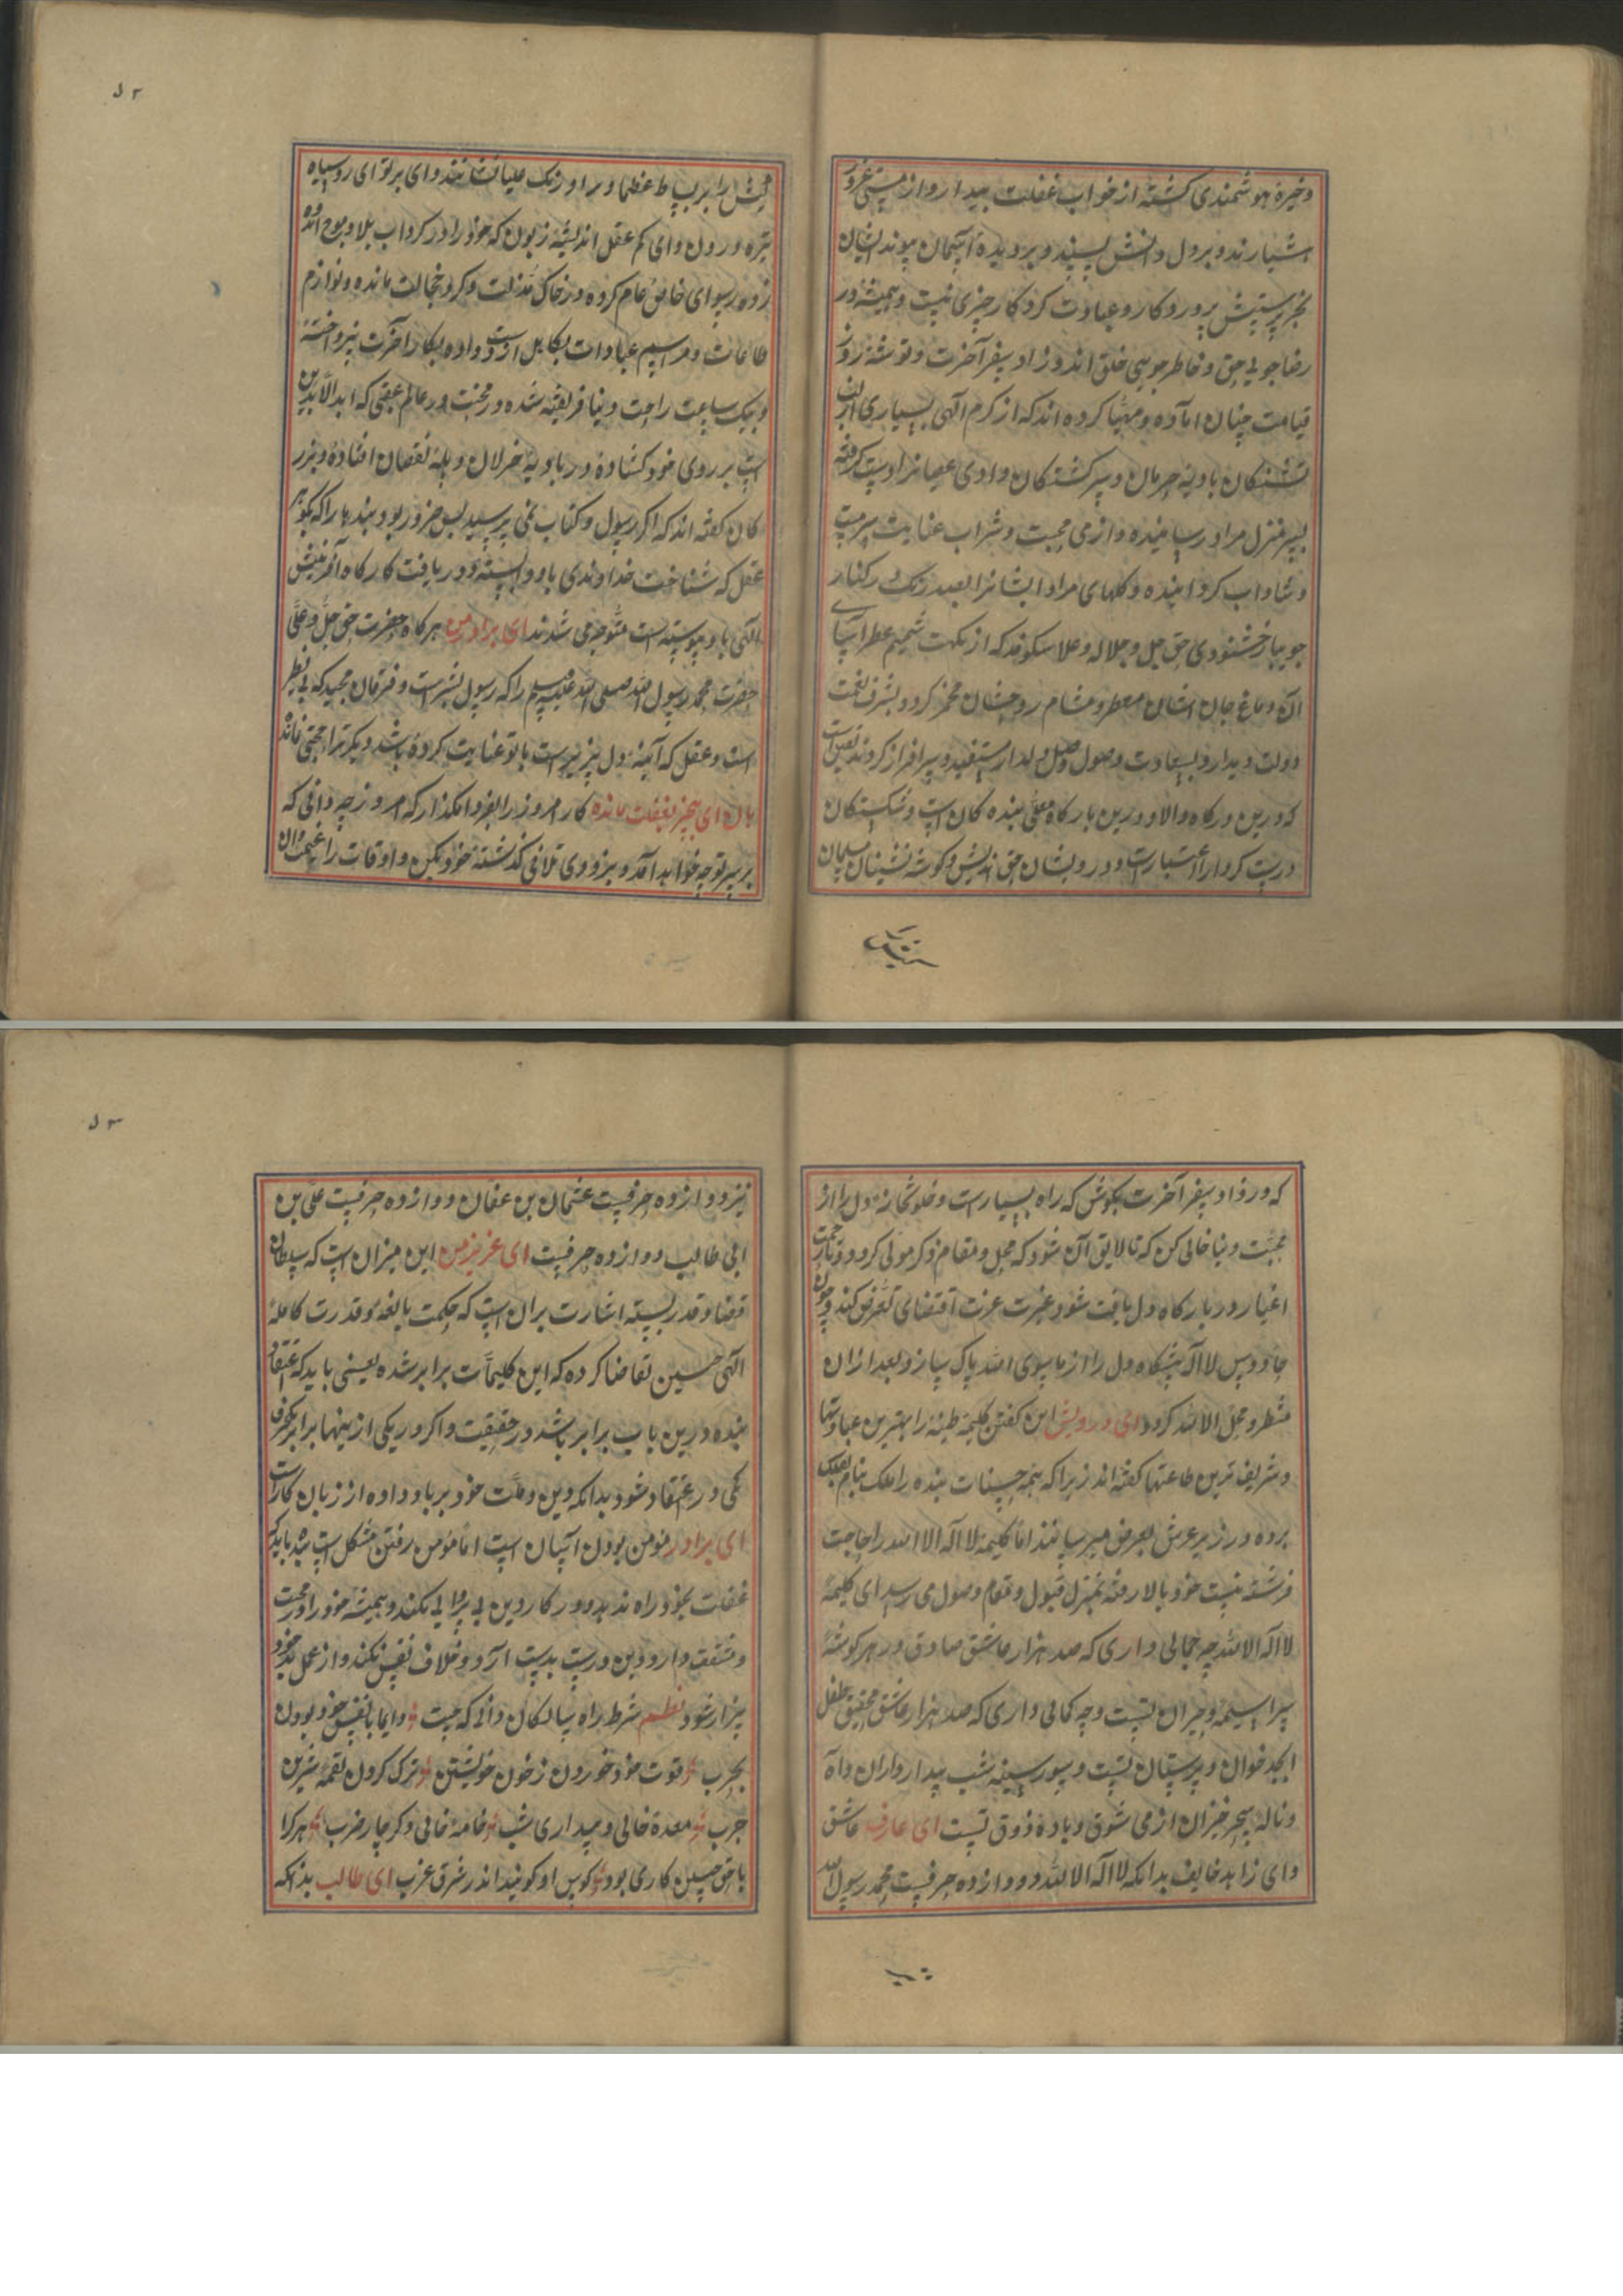 ذخیرهٔ هوشمندی گشته از خواب غفلت بیدار و از مستی غرور
هشیارند و بر دل دانش پسند و بر دیدهٔ آسمان پیوند ایشان
بجز پرستش پروردگار و عبادت کردگار چیزی نیست و همیشه در
رضاجویی حق و خاطرجویی خلق اند و زاد سفر آخرت و توشهٔ روز
قیامت چنان اماده و مهیّا کرده اند که از کرم الهی بسیاری از
تشنگان بادیهٔ حرمان و سرگشتگان وادی عصیانرا دست گرفته
بسرمنزل مراد رسانیده و از می محبت و شراب عنایت سرمست
و شاداب گردانیده و گلهای مراد ایشانرا بصد رنگ در کنار
جویبار خشنودی حق جل و جلاله و علا شکوفد که از نکهت شمیم عطرآسای
آن دماغ جان ایشان معطر و مشام روحشان مخمر گردد و بشرف نعمت
دولت دیدار و بسعادت وصول وصل دلدار مستفید و سرافراز گردند یقین است
که درین درگاه والا و درین بارگاه معلّی بنده گان است و شکستگان
درست کردار را اعتبارست و درویشان حق اندیش و گوشه نشینان سلیمان
منش را بر بساط عظما و بر اورنگ علیا نشانند وای بر تو ای روسیاه
تیره درون وای کم عقل اندیشه زبون که خود را در گرداب بلا و موج اندوه
زده رسوای خاص و عام کرده در خاک مذلت و گرد خجالت مانده و لوازم
طاعات و مراسیم عبادات بکاهل از دست داده بکار آخرت نپرداخته
و بیک ساعت راحت دنیا فریفته شده در محنت در عالم عقبی که ابدالآبدین
است بر روی خود کشاده در بادیهٔ خذلان و پلهٔ نقصان افتادهٔ و بزر
گان گفته اند که اگر رسول و کتاب نمی رسید بس ضرور بود بندها را که بگوهر
عقل که شناخت خداوندی باو وابسته و دریافت کارگاه آفرینش
الهی باو پیوسته است متوجه می شدند ای برادر من هرگاه حضرت حق جلّ و علَی
حضرت محمد رسول الله صلی الله علیه وسلم را که رسول بشر است و فرقان مجید که بی نظیر
است و عقل که آئینهٔ دل پذیر است با تو عنایت کرده باشد دیگر ترا حجتی نماند
هان ای بیخبر بغفلت مانده کار امروز را بفردا مگذار که امروز چه دانی که
بر سر تو چه خواهد آمد و بزودی تلافی گذشتهٔ خود بکن و اوقات را غنیمت دان
که در زاد سفر آخرت بکوش که راه بسیارست و خلوتخانهٔ دل را از
محبّت دنیا خالی کن که تا لایق آن شود که محل و مقام ذکر مولی گردد
اغیار در بارگاه دل یافت شود غیرت عزت اقتضای تعرض کند و چون
جاروبس لااله پیشگاه دل را از ماسوی الله پاک سازد و بعد ازان
منظر و محل الا الله گردد ای درویش این گفتن کلیمهٔ طیبه را بهترین عبادتها
و شریف ترین طاعتها گفته اند زیرا که همه حسنات بنده را ملک بنام بفلک
برده در زیر عرش بعرض میرسانند اما کلیمه لااله الا الله را حاجت
فرشته نیست خود بالا رفته بمنزل قبول و مقام وصول می رسد ای کلیمهٔ
لااله الا الله چه جمالی داری که صد هزار عاشق صادق در هر گوشهٔ
سراسیمه و حیران تست و چه کمالی داری که صد هزار عاشق محقق طفل
ابجد خوان دبیرستان تست و سوز سینهٔ شب بیدار داران و آه
و نالهٔ سحر خیزان از می شوق و بادهٔ ذوق تست ای عارف عاشق
و ای زاهد خایف بدانکه لااله الا الله دوازده حرفست محمد رسول الله
نیز دوازده حرفست عثمان بن عفّان دوازده حرفیست علی بن
ابی طالب دوازده حرفیست ای عزیز من این میزان است که سلطان
قضا و قدر بسته اشارت بران است که حکمت بالغه و قدرت کاملهٔ
الهی چنین تقاضا کرده که این کلیمات برابر شده یعنی باید که اعتقاد
بنده درین باب برابر باشد در حقیقت و اگر در یکی ازینها برابر یکحرف
کمی در اعتقاد شود بدانکه دین و ملّت خود برباد داده از زیان کارانست
ای برادر مومن بودن آسان است امّا مؤمن رفتن مشکل است بنده باید که
غفلت بخود راه ندهد و در کار دین بی پروایی نکند و همیشه خود را در محنت
و مشقت دارد و دین درست بدست آرد و خلاف نفس نکند و از عمل بد خود
بیزار شود نظم شرط راه سالکان دانی که چیست دایما با نفس خود بودن
بحرب قوت خود خوردن ز خون خویشتن ترک کردن لقمهٔ شیرین
چرب معدهٔ خالی و بیداری شب خامهٔ خالی و ذکر چار ضرب هرکرا
با حق چنین کاری بود کوس او کوبند اندر شرق غرب ای طالب بدانکه